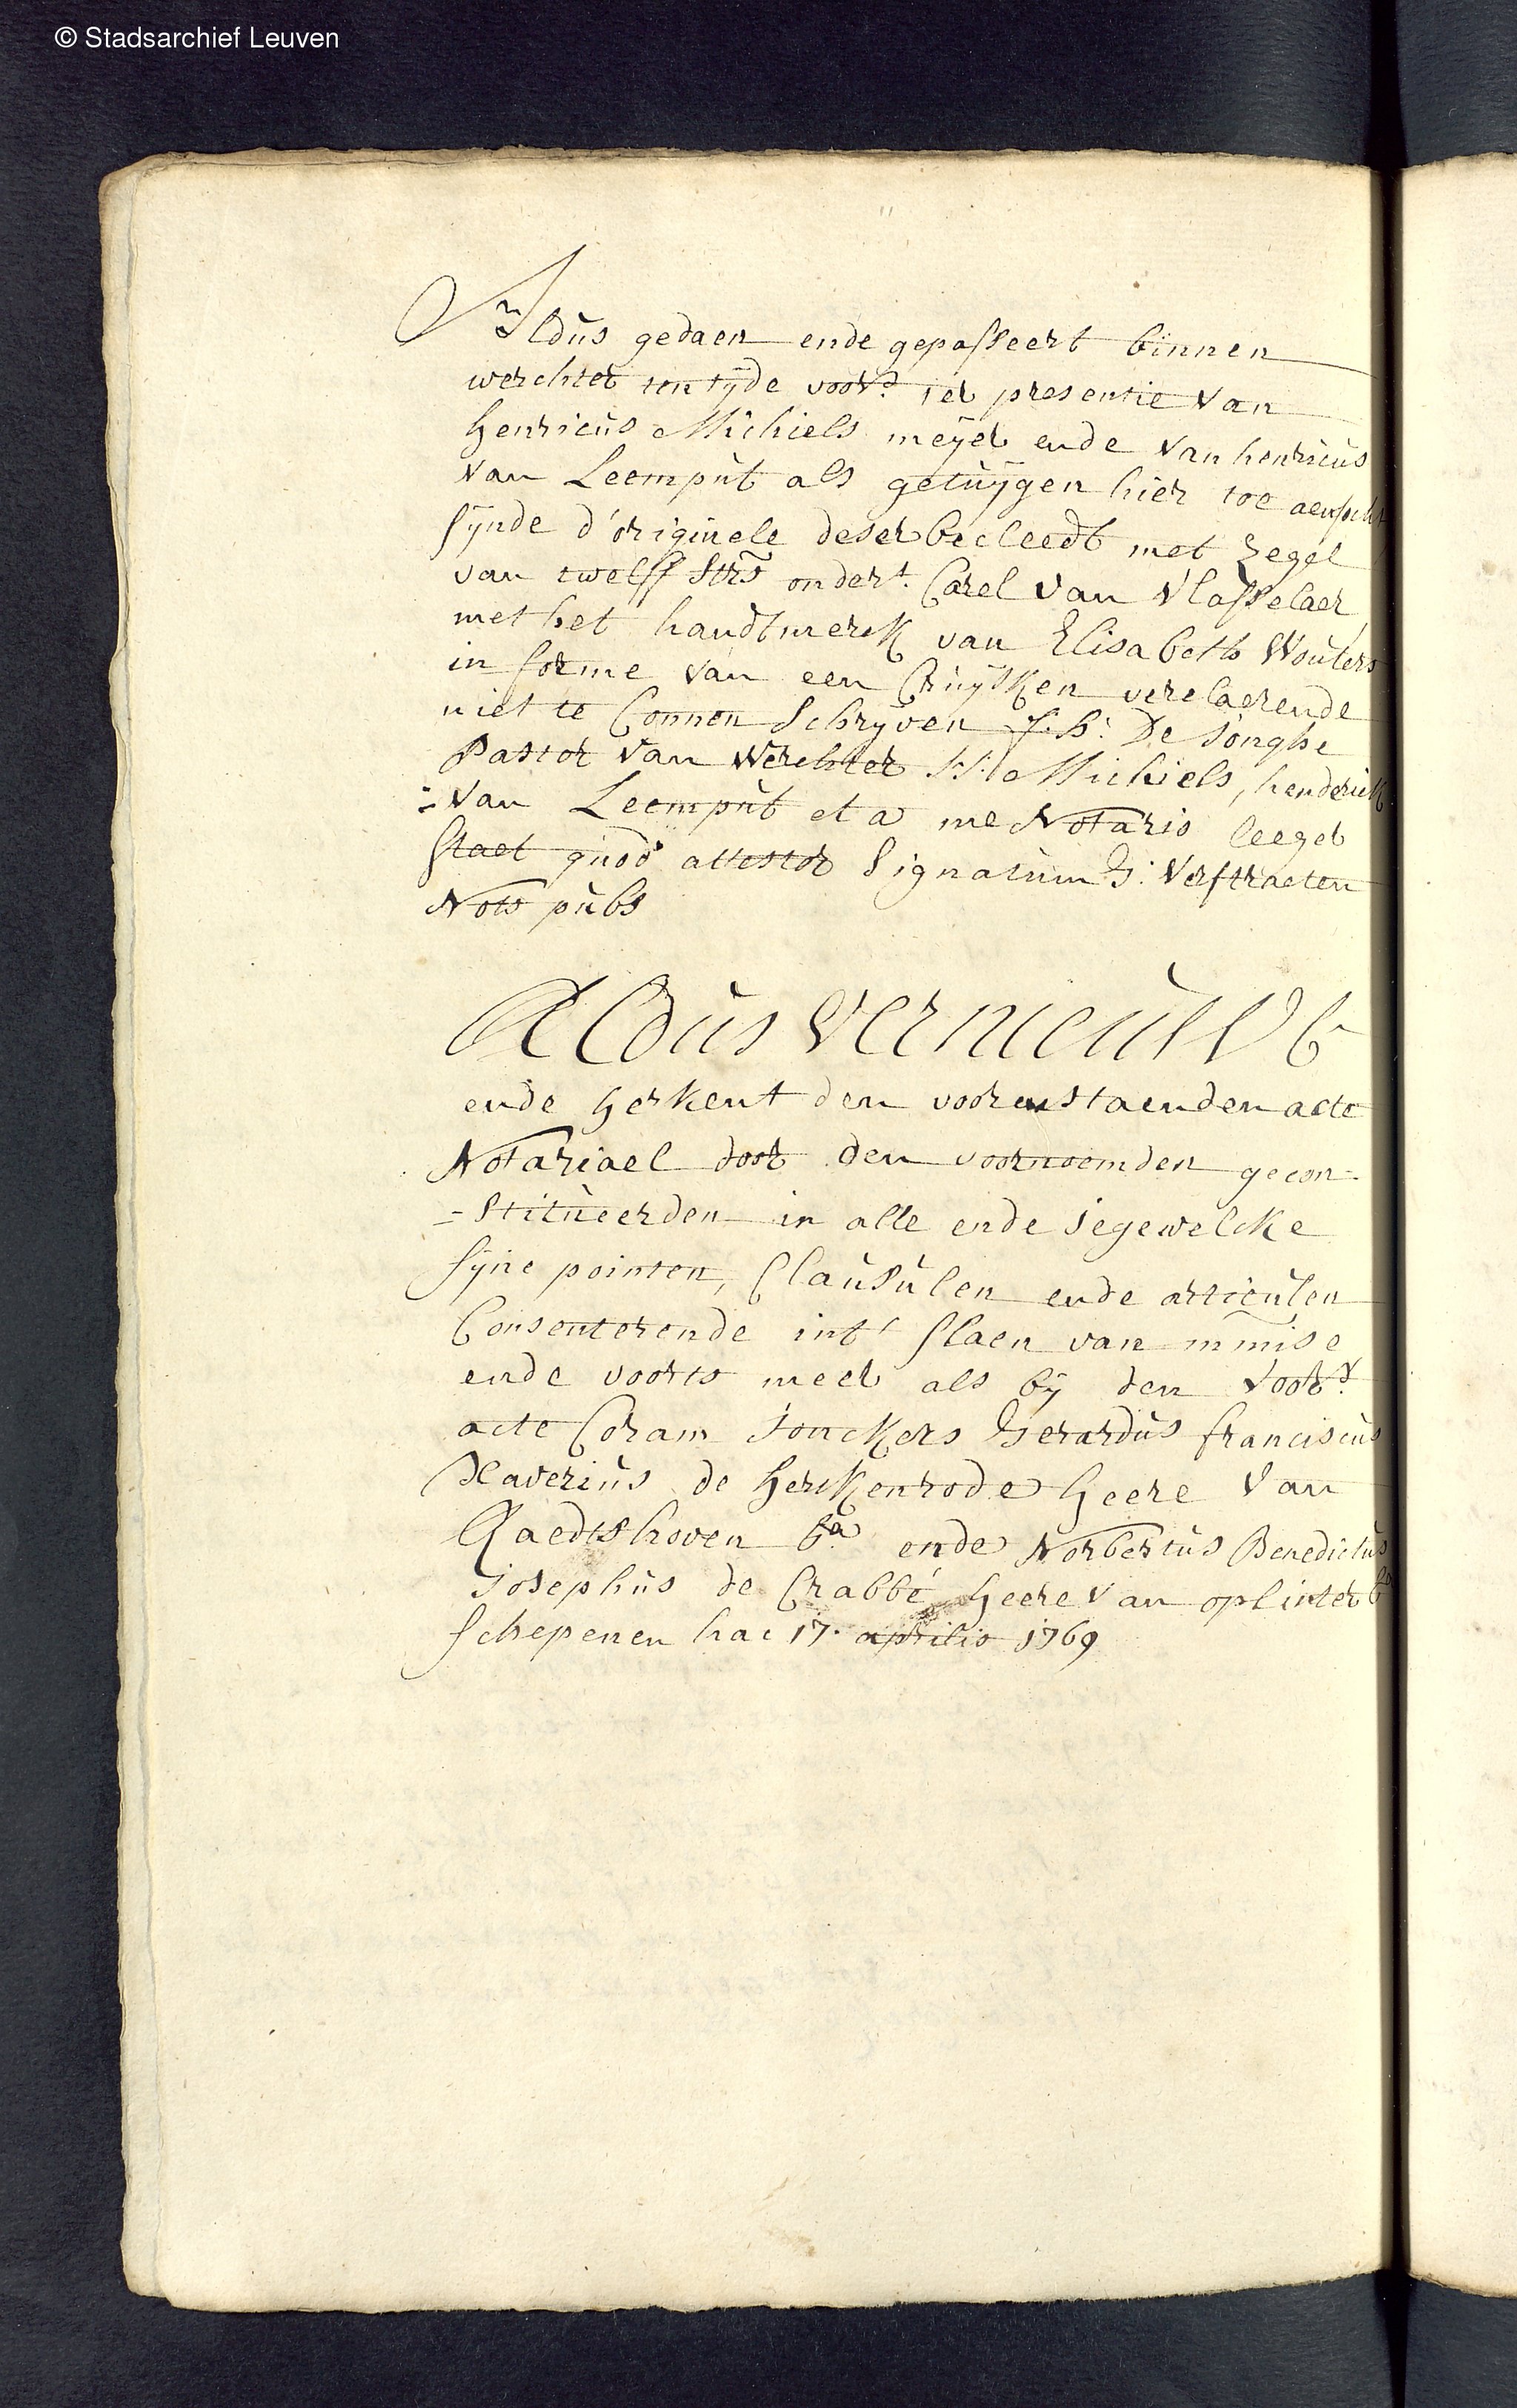 © Stadsarchief Leuven
Aldus gedaen ende gepasseert binnen
werchter ten tyde voors. ter presentie van
henricus Michiels meyer ende van henricus
van Leemput als getuygen hier toe aensocht
synde d'originele deser becleedt met zegel
van twelff strs ondert. Carel van Vlasselaer
met het handtmerck van Elisabeth Wouters
in forme van een Cruysken verclaerende
niet te Connen Schryven J: b: De Jonghe
Pastor van Werchter H: Michiels, henderick
=van Leemput et a me Notario leeger
Staet quod attestor Signatum G: Verstraeten
Nots pubs
Aldus vernieuwt
ende herkent den voorenstaenden acte
Notariael door den voornoemden gecon-
=stitueerden in alle ende iegewelcke
syne pointen, Clausulen ende articulen
Consenterende int' slaen van mmise
ende voorts meer als by den voors.
acte Coram Jonckers Gerardus franciscus
Xaverius de herckenrode heere van
Raedtshoven &a ende Norbertus Benedictus
Josephus de Crabbé heere van oplinter &a
schepenen hac 17. aprilis 1769